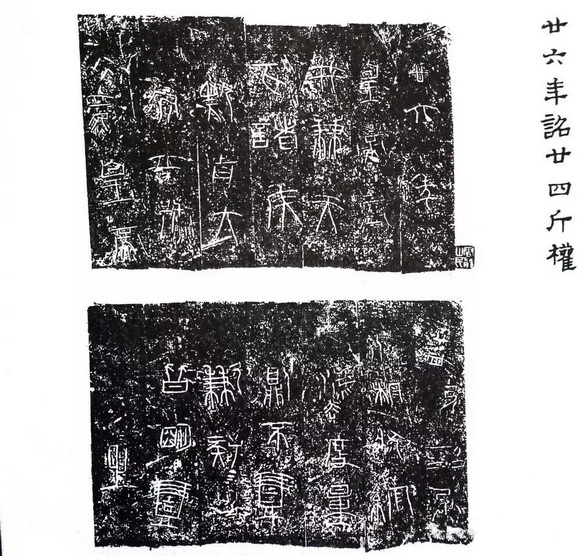 廿六年詔廿四斤權
廿六年
皇帝盡
并兼天
下諸侯
黔首大
安立號
為皇帝
乃詔丞
相狀綰
法度量
則不壹
歉疑者
皆明壹
之